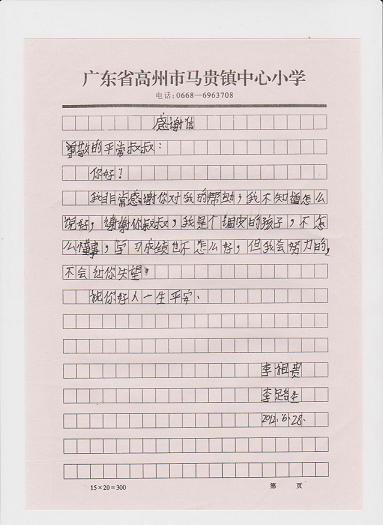 广东省高州市马贵镇中心小学
电话:0668—6963708
感谢信
尊敬的平常叔叔：
你好！
我非常感谢你对我的帮助，我不知道怎么
说好，谢谢你叔叔，我是个调皮的孩子，不怎
么懂事，学习成绩也不怎么好，但我会努力的，
不会让你失望。
祝你好人一生平安．
李祖贵
李
2012.6.28.
15×20=300
第 页